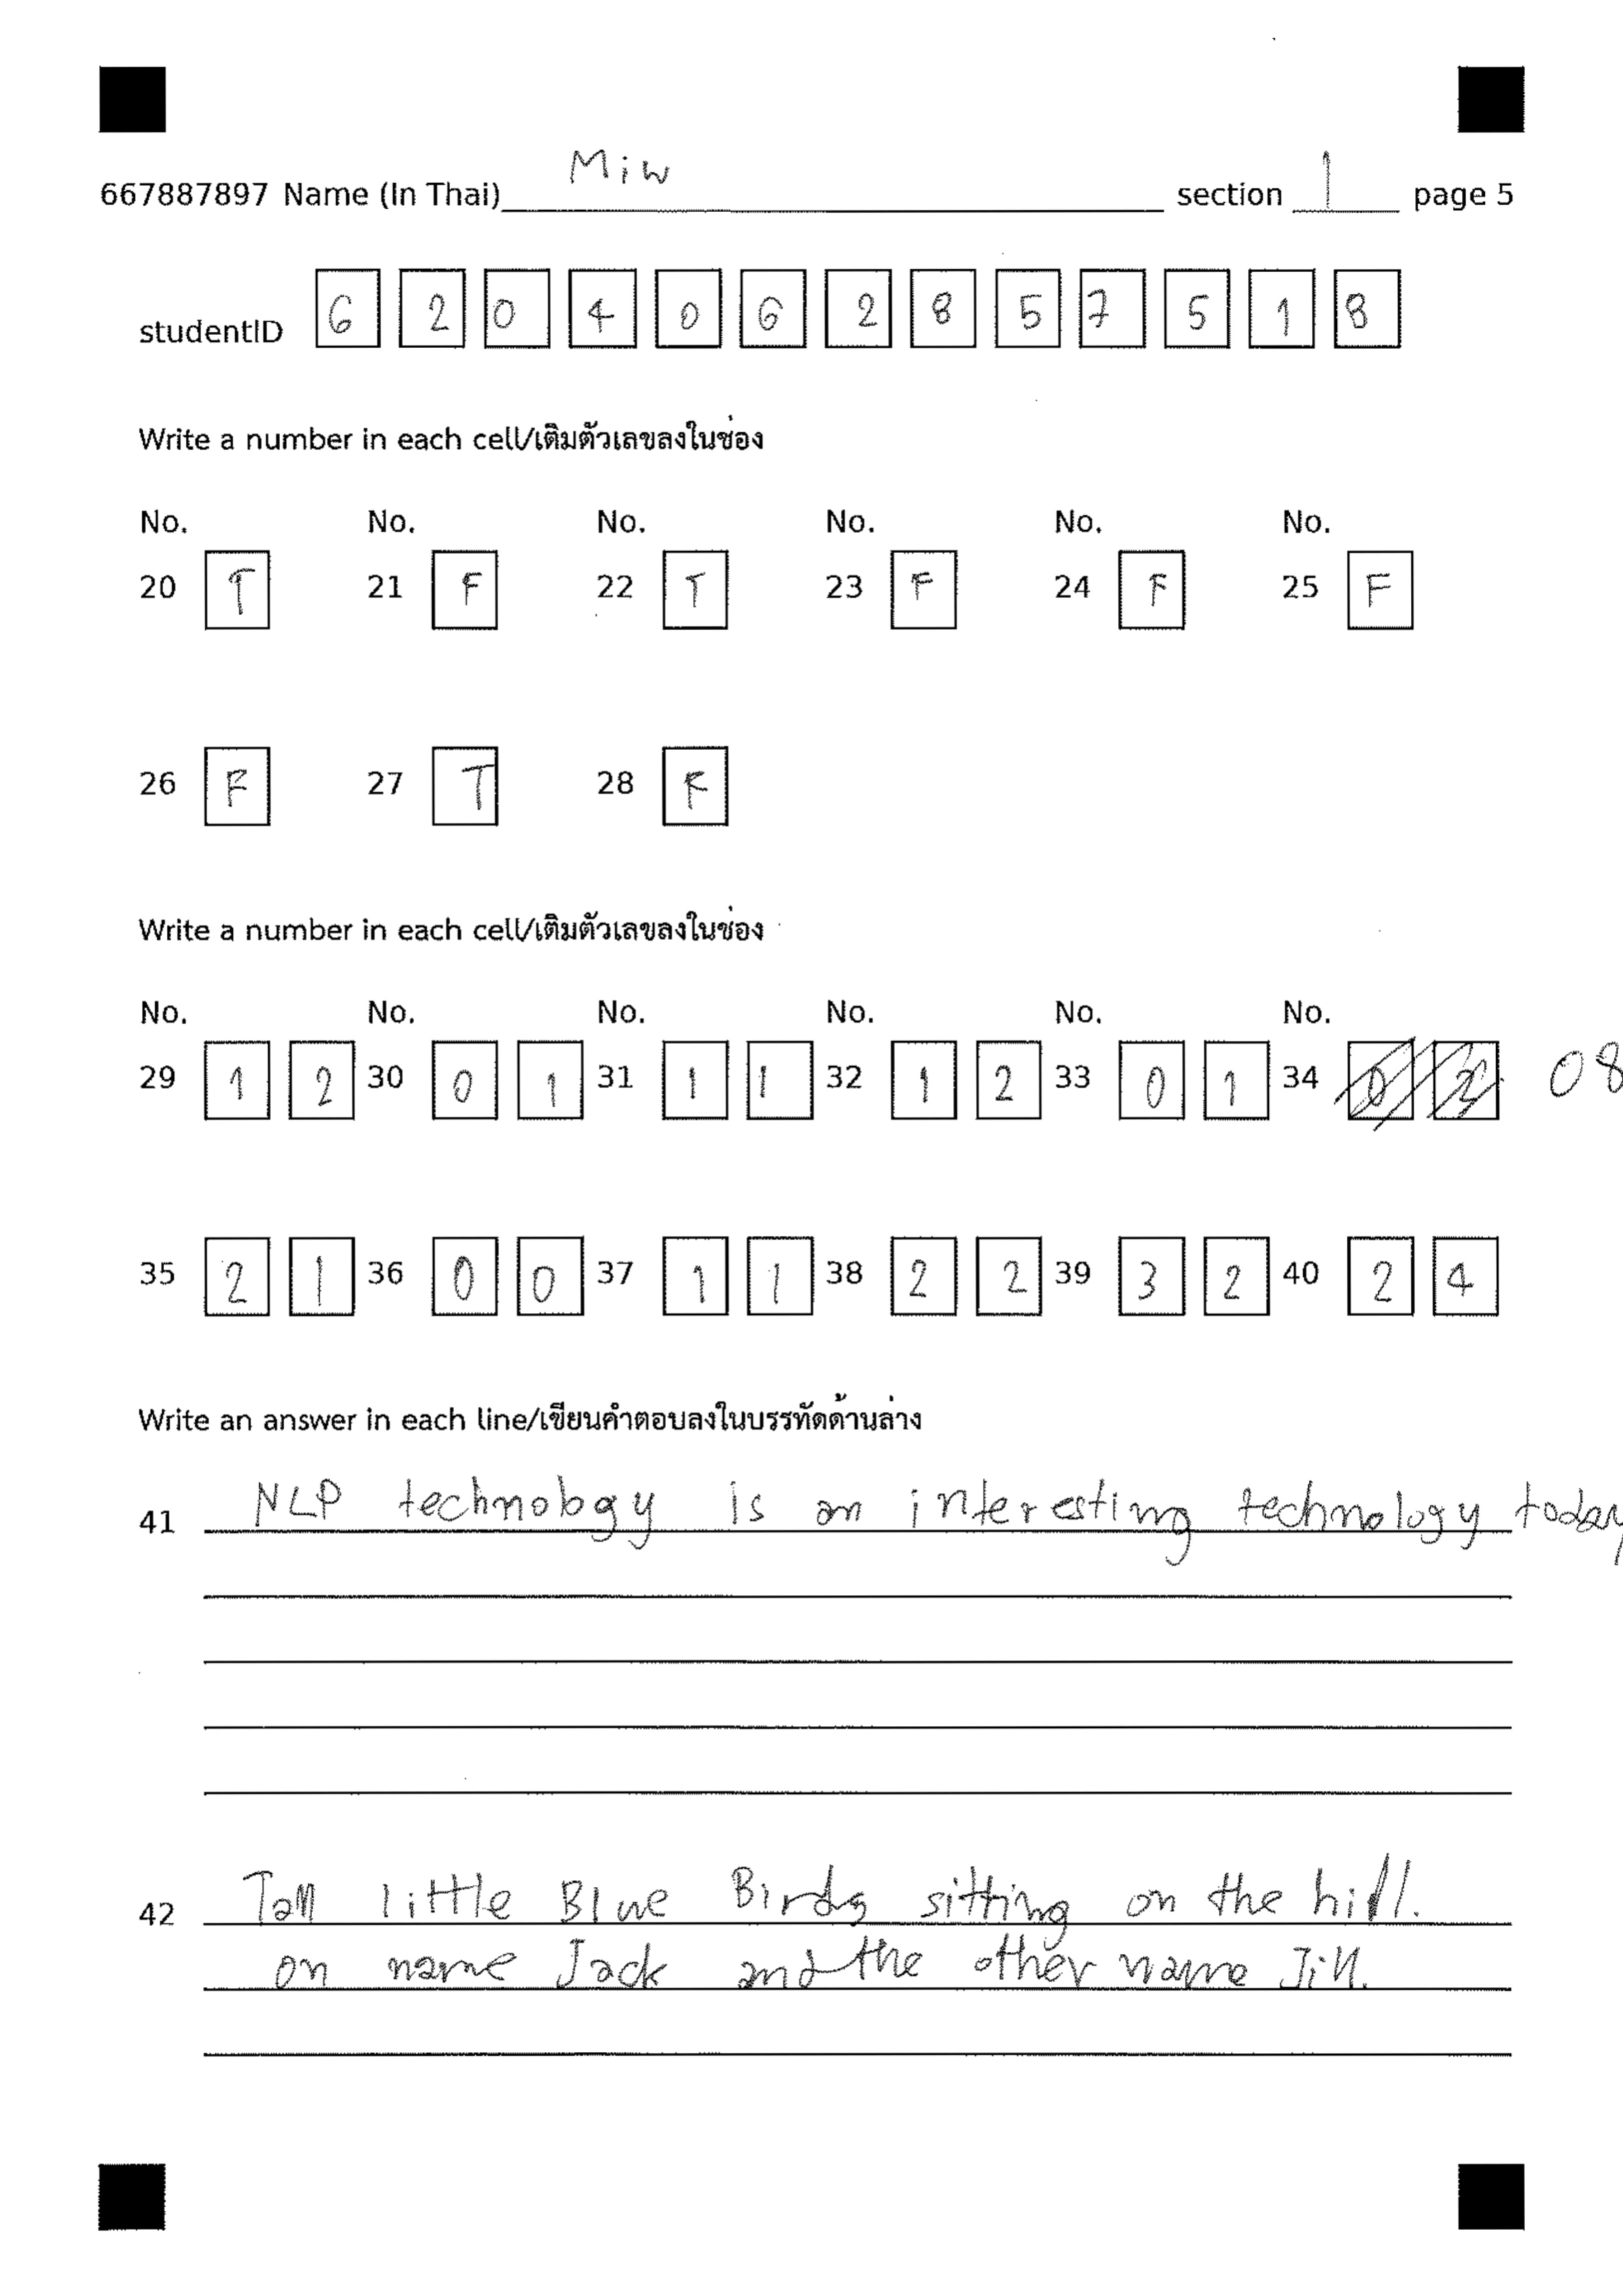 Miw
667887897 Name (In Thai) section 1 page 5
studentID 6 2 0 4 0 6 2 8 5 7 5 1 8
Write a number in each cell/เติมตัวเลขลงในช่อง
No. No. No. No. No. No.
20 T 21 F 22 T 23 F 24 F 25 F
26 F 27 T 28 F
Write a number in each cell/เติมตัวเลขลงในช่อง
No. No. No. No. No. No.
29 1 2 30 0 1 31 1 1 32 1 2 33 0 1 34 08
35 2 1 36 0 0 37 1 1 38 2 2 39 3 2 40 2 4
Write an answer in each line/เขียนคำตอบลงในบรรทัดด้านล่าง
41 NLP technology is an interesting technology today
42 Tall little Blue Birds sitting on the hill.
on name Jack and the other name Jill.